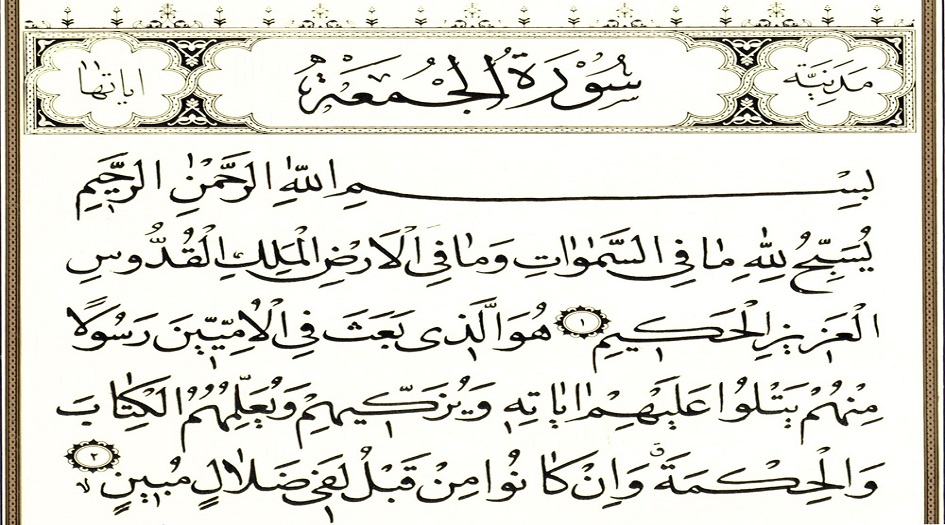 مَدَنِيَّة سُورَةُ الْجُمُعَةِ اٰيَاتُهَا ١١
بِسْمِ اللّٰهِ الرَّحْمٰنِ الرَّحِيمِ
يُسَبِّحُ لِلّٰهِ مَا فِي السَّمٰوَاتِ وَمَا فِي الْاَرْضِ الْمَلِكِ الْقُدُّوسِ
الْعَزِيزِ الْحَكِيمِ ١ هُوَ الَّذِى بَعَثَ فِي الْاُمِّيّ۪نَ رَسُولًا
مِنْهُمْ يَتْلُوا عَلَيْهِمْ اٰيَاتِهِ وَيُزَكِّيهِمْ وَيُعَلِّمُهُمُ الْكِتَابَ
وَالْحِكْمَةَ وَاِنْ كَانُوا مِنْ قَبْلُ لَفِي ضَلَالٍ مُبِينٍ ٢